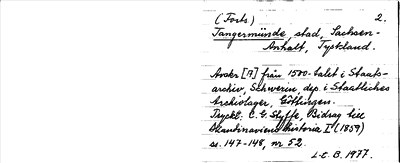 (Forts) 2.
Tangermünde stad, Sachsen-
Anhalt, Tyskland.
Avskr [A] från 1500-talet i Staats-
archiv, Schwerin, dep. i Staatliches
Archivlager, Göttingen.
Tryckt. C. G. Styffe, Bidrag till
Skandinaviens historia I (1859)
ss. 147-148, nr 52.
L-E. B. 1977.